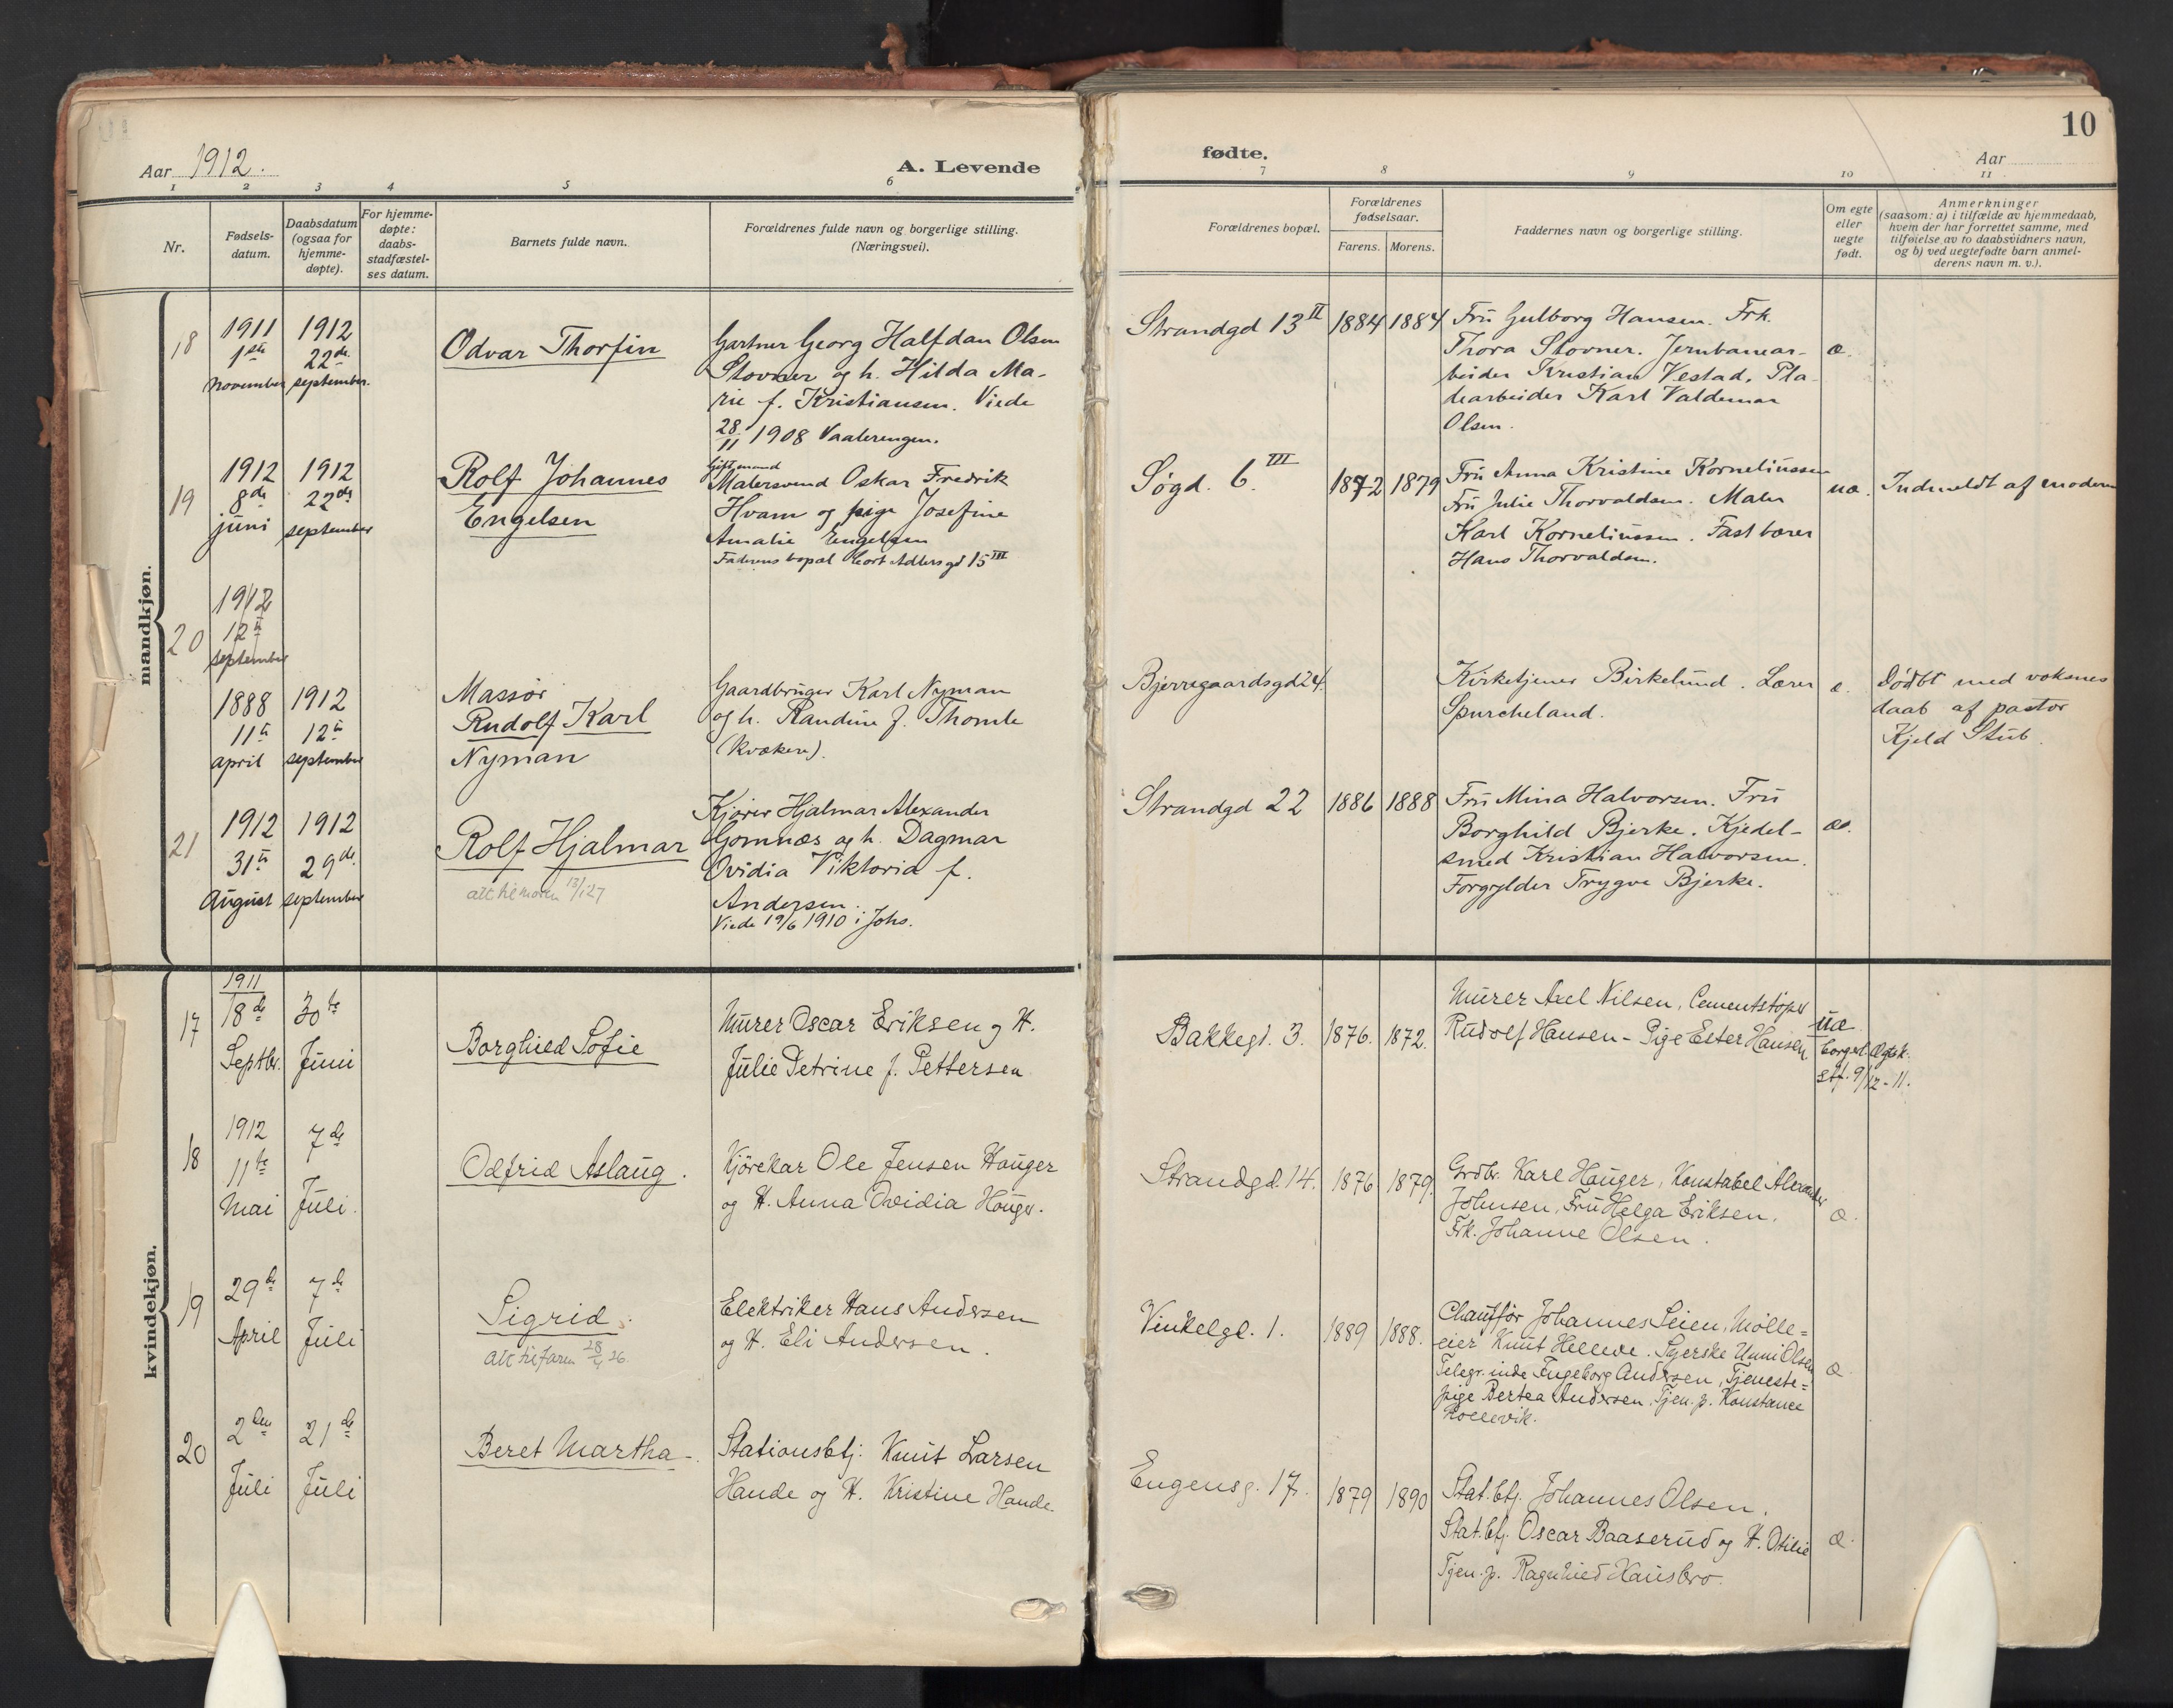 10
Aar 1912.
A. Levende
fødte.
Aar
1 2 3 4 5 6 7 8 9 10 11
Nr.
Fødsels-
datum.
Daabsdatum
(ogsaa for
hjemme-
døpte).
For hjemme-
døpte:
daabs-
stadfæstel-
ses datum.
Barnets fulde navn.
Forældrenes fulde navn og borgerlige stilling.
(Næringsvei).
Forældrenes bopæl.
Forældrenes
fødselsaar.
Farens. Morens.
Faddernes navn og borgerlige stilling.
Om egte
eller
uegte
født.
Anmerkninger
(saasom: a) i tilfælde av hjemmedaab,
hvem der har forrettet samme, med
tilføielse av to daabsvidners navn,
og b) ved uegtefødte barn anmel-
derens navn m. v.).
mandkjøn.
18
1911
1ste
november
1912
22de
september.
Odvar Thorfin
Gartner Georg Halfdan Olsen
Stovner og h. Hilda Ma-
rie f. Kristiansen. Viede
28/11 1908 Vaalerengen.
Strandgd 13 II
1884 1884
Fru Gulborg Hansen. Frk.
Thora Stovner. Jernbanear-
beider Kristian Vestad. Pla-
tearbeider Karl Valdemar
Olsen.
æ.
19
1912
8de
juni
1912
22de
september
Rolf Johannes
Engelsen
Gift mand
Malersvend Oskar Fredrik
Hvam og pige Josefine
Amalie Engelsen
Faderens bopæl Cort Adlersgd 15 III
Søgd. 6. III
1872 1879
Fru Anna Kristine Korneliussen
Fru Julie Thorvaldsen. Maler
Karl Korneliussen. Fastbærer
Hans Thorvaldsen.
uæ.
Indmeldt af moderen
20
1912
12te
september
1888
11te
april
1912
12te
september
Massør
Rudolf Karl
Nyman
Gaardbruger Karl Nyman
og h. Randine f. Thomle
(Kvækere).
Bjerregaardsgd 24.
Kirketjener Birkelund. Lærer
Spurcheland.
æ.
Dødbt med voksnes
daab af pastor
Kjeld Stub.
21
1912
31te
August
1912
29de
september
Rolf Hjalmar
att til moren 13/1 27
Kjører Hjalmar Alexander
Gomnæs og h. Dagmar
Ovidia Viktoria f.
Andersen.
Viede 19/6 1910 i Johs.
Strandgd 22
1886 1888
Fru Mina Halvorsen. Fru
Borghild Bjerke. Kjedel-
smed Kristian Halvorsen.
Forgylder Trygve Bjerke.
æ.
kvindekjøn.
17
1911
18de
Septbr.
30te
Juni
Borghild Sofie
Murer Oscar Eriksen og H.
Julie Petrine f. Pettersen
Bakkegt. 3.
1876. 1872.
Murer Axel Nilsen, Cementstøper
Rudolf Hansen - Pige Ester Hansen
uæ.
borgerl. Ægtsk.
stf. 9/12 - 11.
18
1912
11te
Mai
7de
Juli.
Odfrid Aslaug.
Kjørekar Ole Jensen Hauger
og H. Anna Ovidia Hauger.
Strandgd. 14.
1876 1879.
Grdbr. Karl Hauger, Konstabel Alexander
Johnsen, Fru Helga Eriksen,
Frk. Johanne Olsen.
æ.
19
29de
April
7de
Juli
Sigrid.
att til faren 28/4 26.
Elektriker Hans Andersen
og H. Eli Andersen.
Vinkelgt. 1.
1889 1888.
Chauffør Johannes Leien, Mølle=
eier Knut Helleve. Syerske Unni Olsen
Telegr.inde Ingeborg Andersen, Tjeneste=
pige Bertea Andersen. Tjen. p. Konstance
Hollevik.
æ.
20
2den
Juli
21de
Juli
Beret Martha.
Stationsbtj. Knut Larsen
Hande og H. Kristine Hande
Engensg. 17.
1879 1890
Stat.btj. Johannes Olsen.
Stat.btj. Oscar Baaserud og H. Otilie
Tjen. p. Ragnhild Hausbro.
æ.